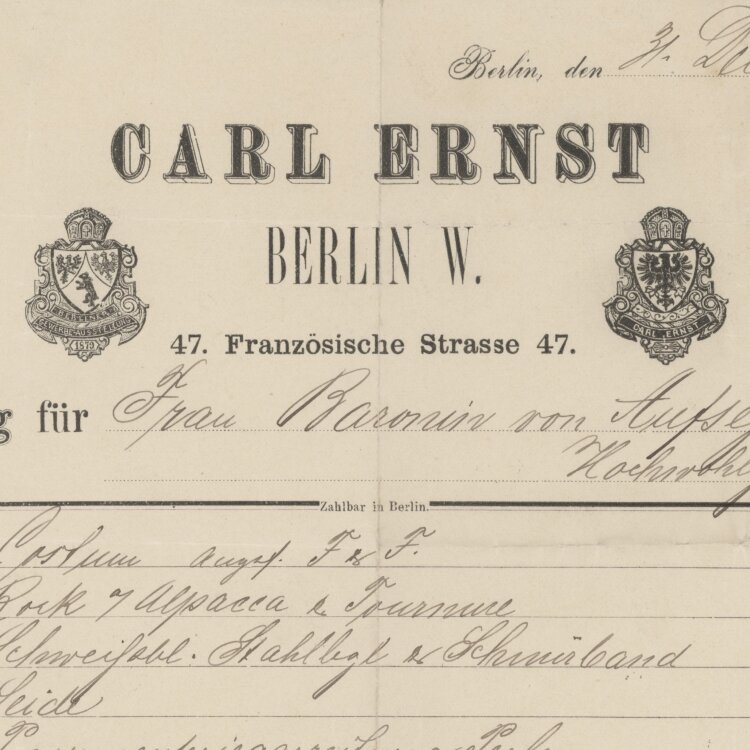 Berlin, den 31. De
CARL ERNST
BERLIN W.
BERLINER
GEWERBEAUSSTELLUNG
1879
CARL ERNST
47. Französische Strasse 47.
g für Frau Baronin von Aufse
Hochwohlg
Zahlbar in Berlin.
Costum angef. F & F.
Rock 7 Alpacca & Tournure
Schweißbl. Stahlbgl & Schnürband
Seide